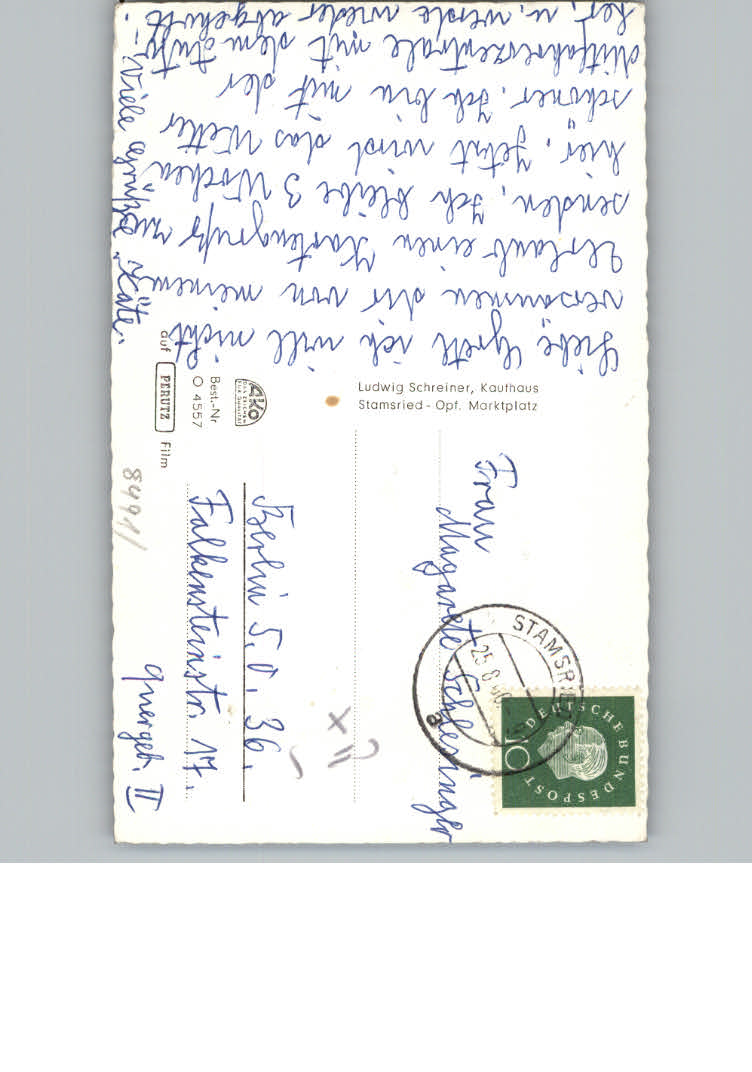 Liebe Gretl ich will nicht
versäumen dir von meinem
Urlaub einen Kartengruß zu
senden, Ich bleibe 3 Wochen
hier, jetzt wird das Wetter
schöner. Ich bin mit der
Mitfahrerzentrale mit dem Auto
her, u. werde wieder abgeholt!
Viele Grüße Käte.
Ludwig Schreiner, Kaufhaus
Stamsried - Opf. Marktplatz
AKO
DAS ZEICHEN
FÜR QUALITÄT
Best.-Nr
O 4557
auf PERUTZ Film
STAMSRIED
25.8.60
a
DEUTSCHE BUNDESPOST
10
Frau
Magarete Schlesinger
Berlin S.O. 36.
Falkensteinstr. 17.
Quergeb. II
8491/